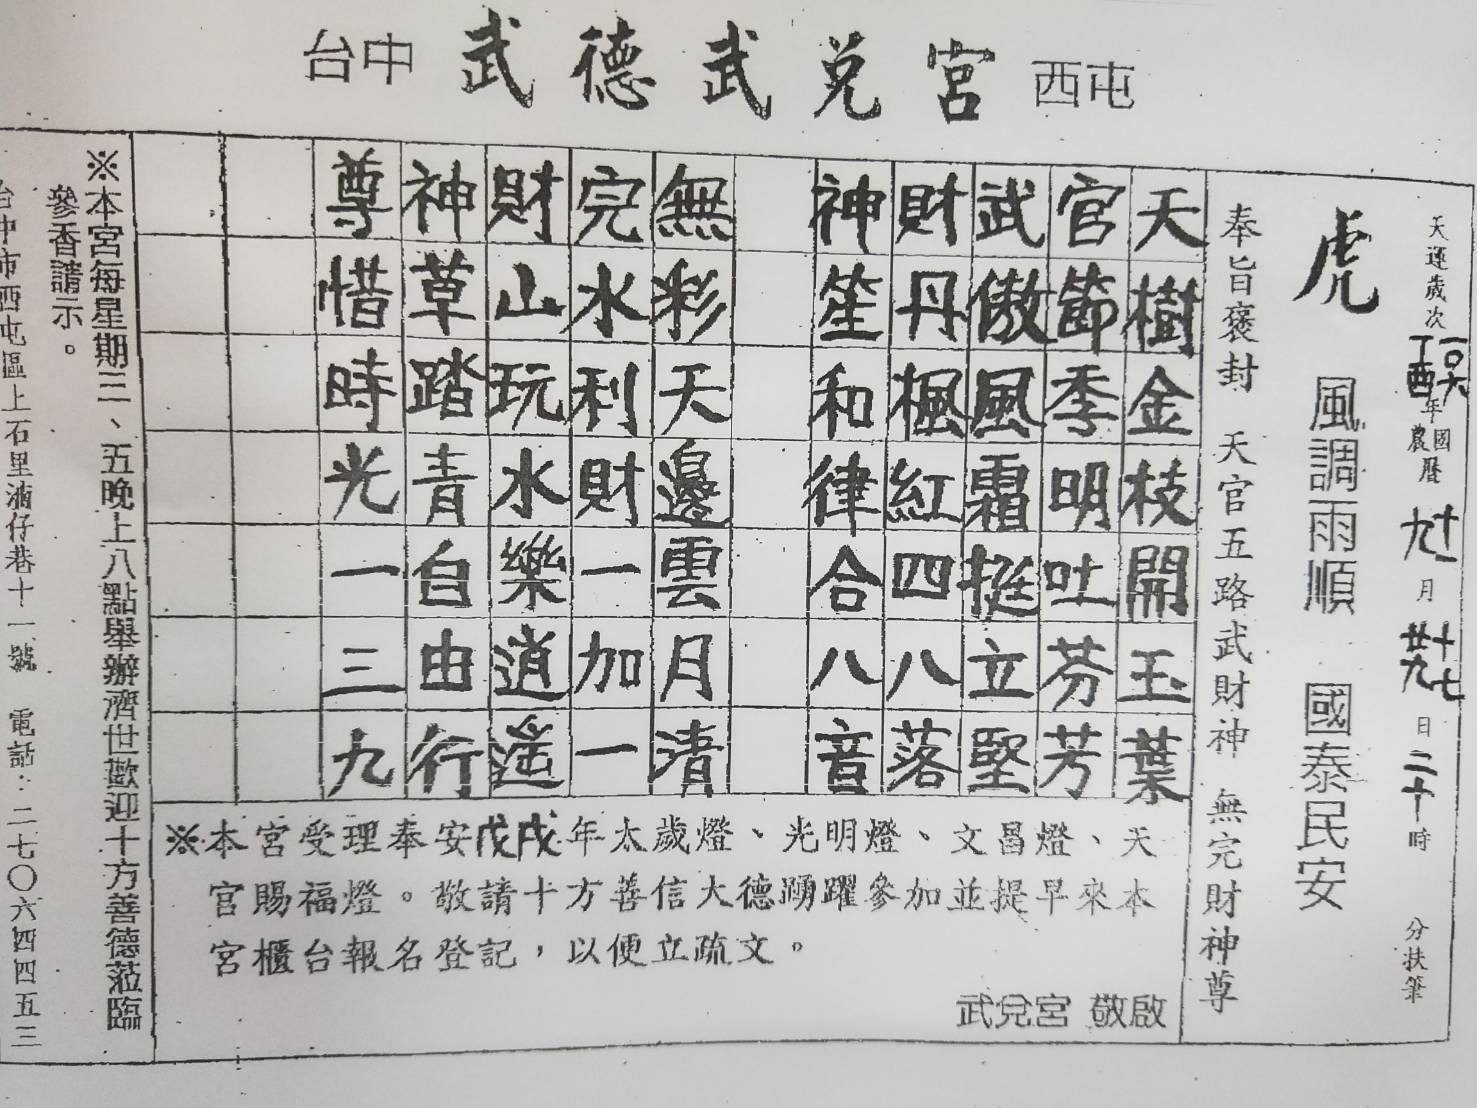 台中 武德武兌宮 西屯
天運歲次丁酉年國曆十一月十七日二十時 分扶筆
農曆九月廿九
虎 風調雨順 國泰民安
奉旨褒封 天官五路武財神 無完財神尊
天樹金枝開玉葉
官節季明吐芬芳
武傲風霜挺立堅
財丹楓紅四八落
神笙和律合八音
無彩天邊雲月清
完水利財一加一
財山玩水樂逍遙
神草踏青自由行
尊惜時光一三九
※本宮受理奉安戊戌年太歲燈、光明燈、文昌燈、天
官賜福燈。敬請十方善信大德踴躍參加並提早來本
宮櫃台報名登記，以便立疏文。
武兌宮 敬啟
※本宮每星期三、五晚上八點舉辦濟世歡迎十方善德蒞臨
參香請示。
台中市西屯區上石里湳仔巷十一號 電話：二七〇六四四五三